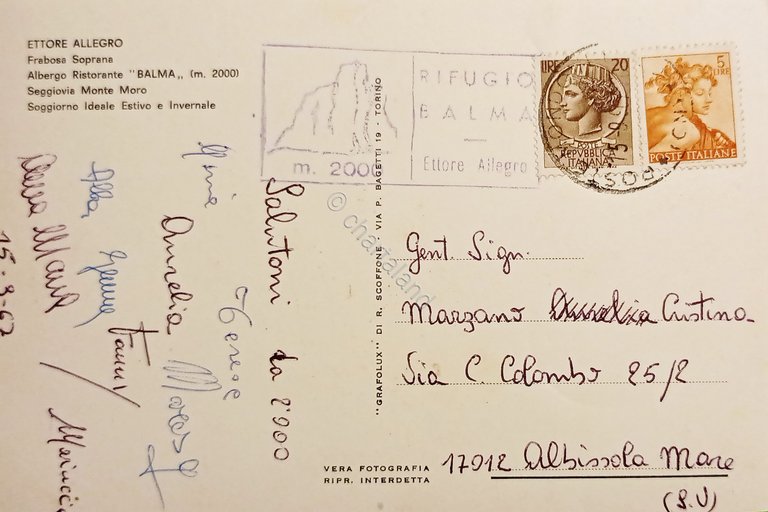 ETTORE ALLEGRO
Frabosa Soprana
Albergo Ristorante "BALMA„ (m. 2000)
Seggiovia Monte Moro
Soggiorno Ideale Estivo e Invernale
m. 2000
RIFUGIO
BALMA
Ettore Allegro
LIRE 20
REPVBBLICA
ITALIANA
5
LIRE
POSTE ITALIANE
Salutoni da 2000
Terese
Aurelia
Fanny
Mariuccia
"GRAFOLUX" DI R. SCOFFONE - VIA P. BAGETTI 19 - TORINO
© chartaland
Gent. Sign.
Marzano Cristina
Via C. Colombo 25/2
17012 Albissola Mare
(S.V)
VERA FOTOGRAFIA
RIPR. INTERDETTA